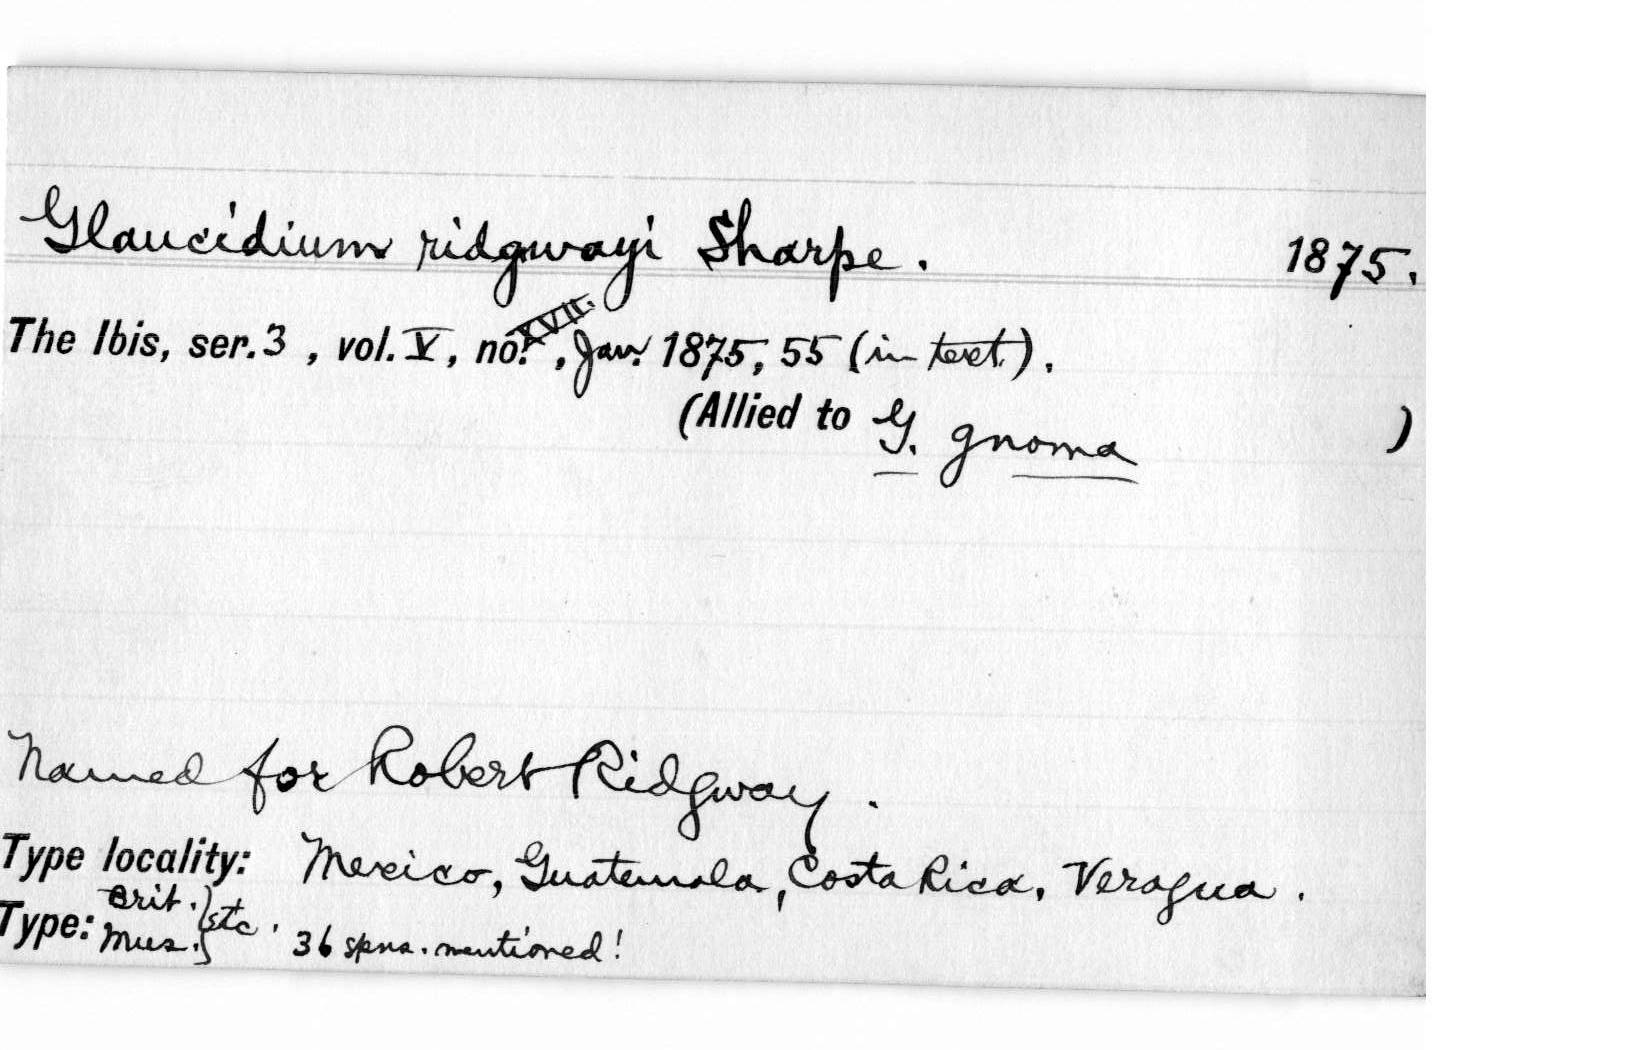 Glaucidium ridgwayi Sharpe. 1875.
The Ibis, ser. 3, vol. V, no. XVII., Jan. 1875, 55 (in text).
(Allied to G. gnoma )
Named for Robert Ridgway.
Type locality: Mexico, Guatemala, Costa Rica, Veragua.
Type: Brit. Mus. } etc. 36 spns. mentioned!